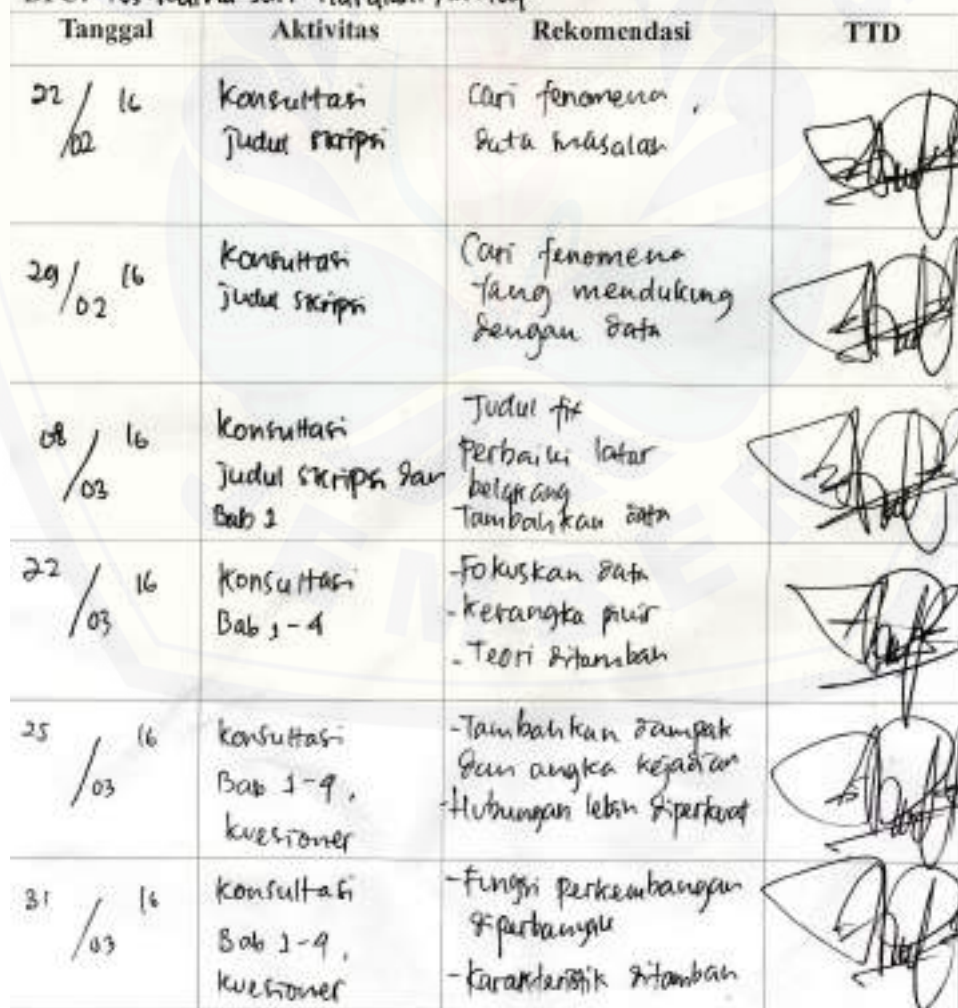 Tanggal Aktivitas Rekomendasi TTD
22/02 16
Konsultasi
Judul skripsi
Cari fenomena,
data masalah
29/02 16
Konsultasi
Judul skripsi
Cari fenomena
Yang mendukung
dengan data
08/03 16
Konsultasi
Judul skripsi dan
Bab 1
Judul fix
Perbaiki latar
belakang
Tambahkan data
22/03 16
Konsultasi
Bab 1-4
-Fokuskan data
-Kerangka pikir
-Teori ditambah
25/03 16
Konsultasi
Bab 1-4,
kuesioner
-Tambahkan dampak
dan angka kejadian
-Hubungan lebih diperkuat
31/03 16
Konsultasi
Bab 1-4,
kuesioner
-Fungsi perkembangan
diperbanyak
-Karakteristik ditambah